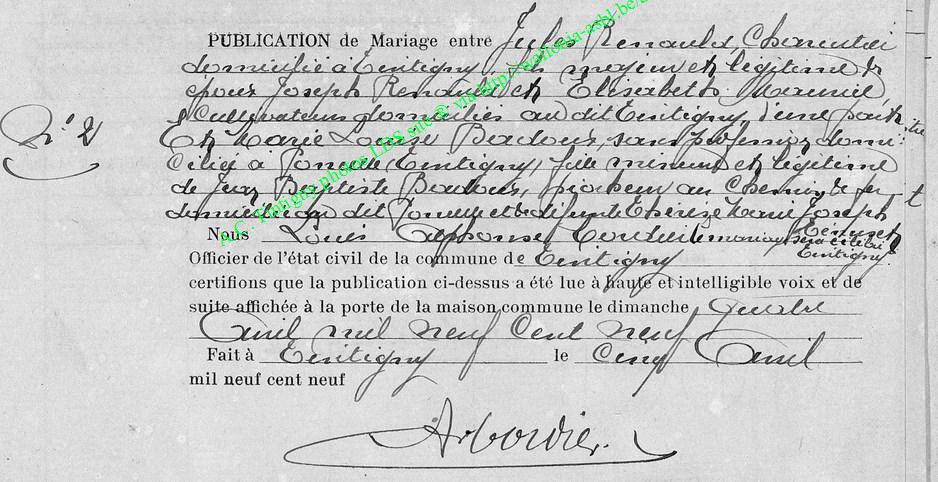 PUBLICATION de Mariage entre Jules Renauld, Charcutier
domicilié à Tintigny, fils majeur et légitime de
époux Joseph Renauld et Elisabeth
Cultivateurs domiciliés au dit Tintigny, d'une part
Et Marie Louise Baudoux, sans profession domi-
N° 2
ciliée à Tintigny, fille mineure et légitime
de Jean Baptiste Baudoux, piocheur au Chemin de fer
domicilié au dit et de défunte Thérèse Marie Joseph
Nous Louis Alphonse mariage sera célébré
Tintigny.
Officier de l'état civil de la commune de Tintigny
certifions que la publication ci-dessus a été lue à haute et intelligible voix et de
suite affichée à la porte de la maison commune le dimanche quatre
Avril mil neuf cent neuf
Fait à Tintigny le Cinq Avril
mil neuf cent neuf
A.C. Tintigny photos LDS site @ via http://wallonia-asbl.be/